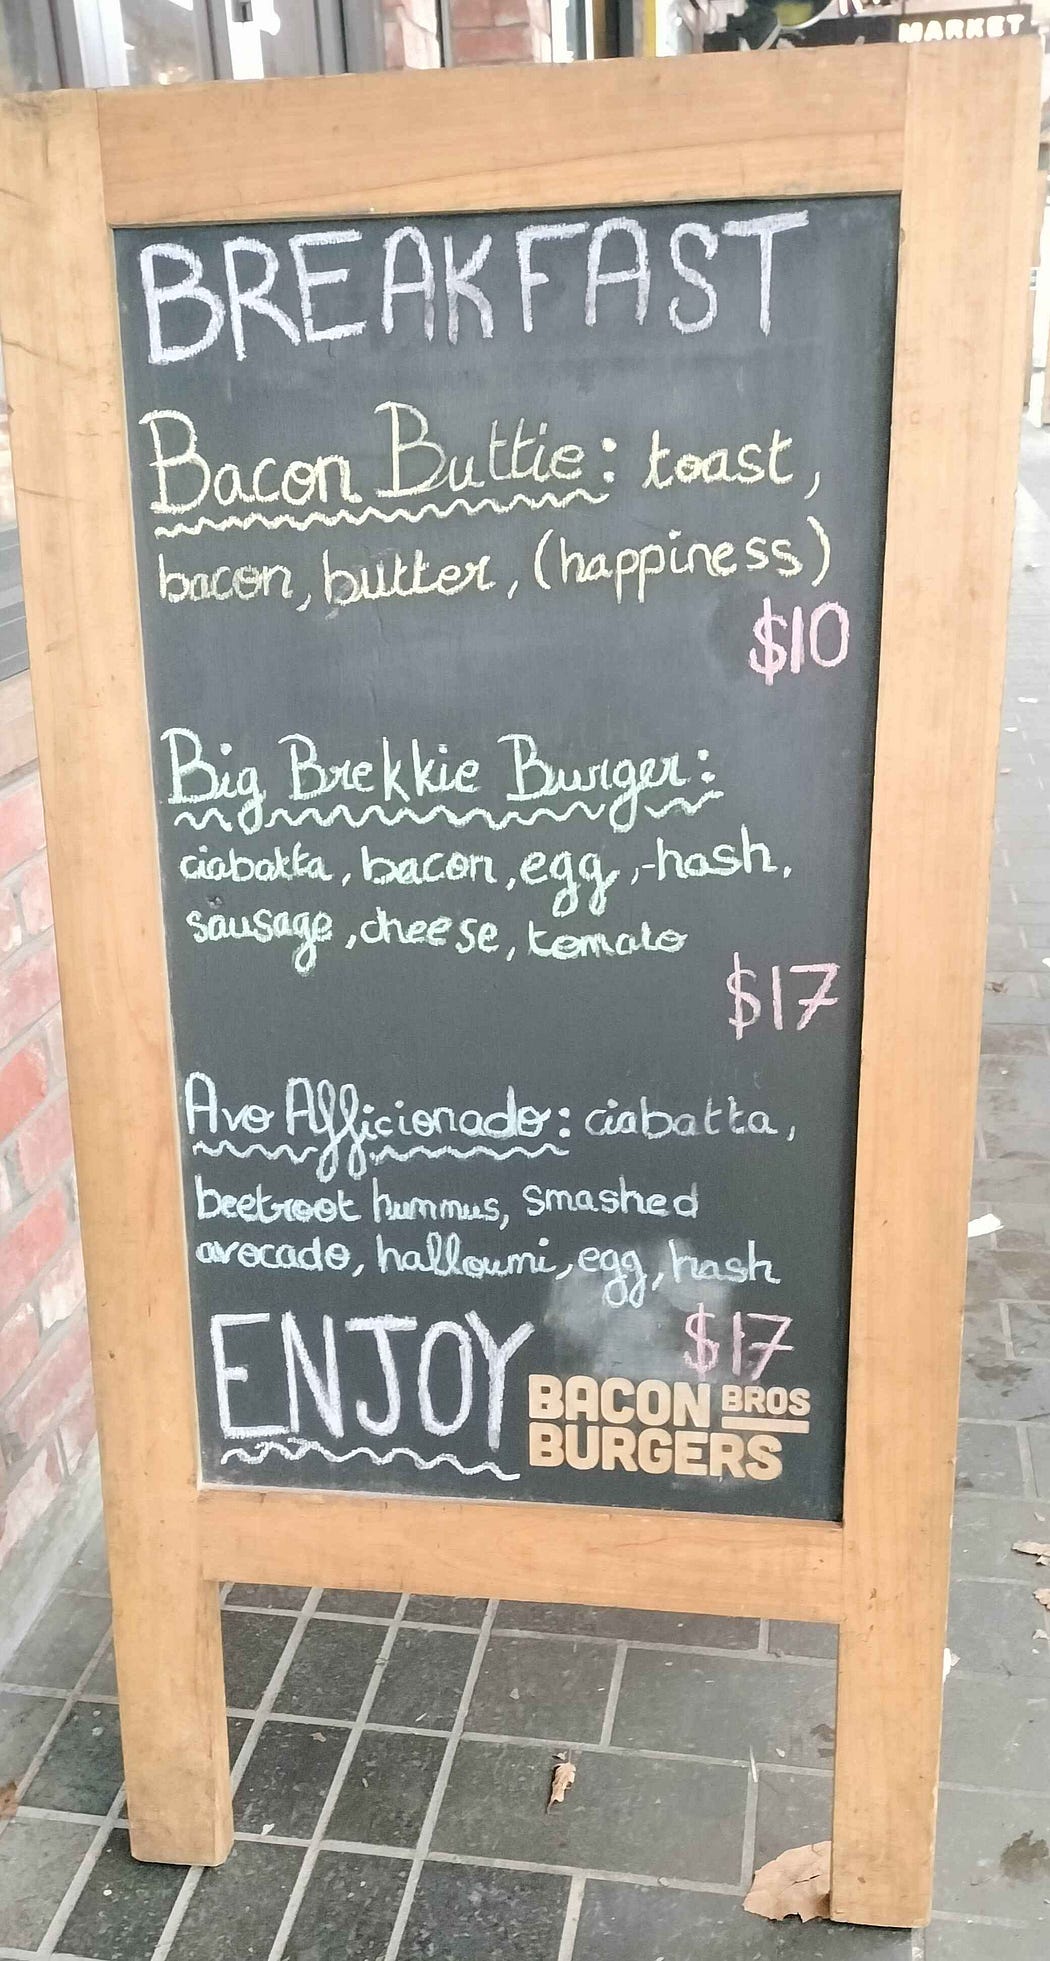 MARKET
BREAKFAST
Bacon Buttie: toast,
bacon, butter, (happiness)
$10
Big Brekkie Burger:
ciabatta, bacon, egg, hash,
sausage, cheese, tomato
$17
Avo Afficionado: ciabatta,
beetroot hummus, smashed
avocado, halloumi, egg, hash
$17
ENJOY
BACON BROS
BURGERS